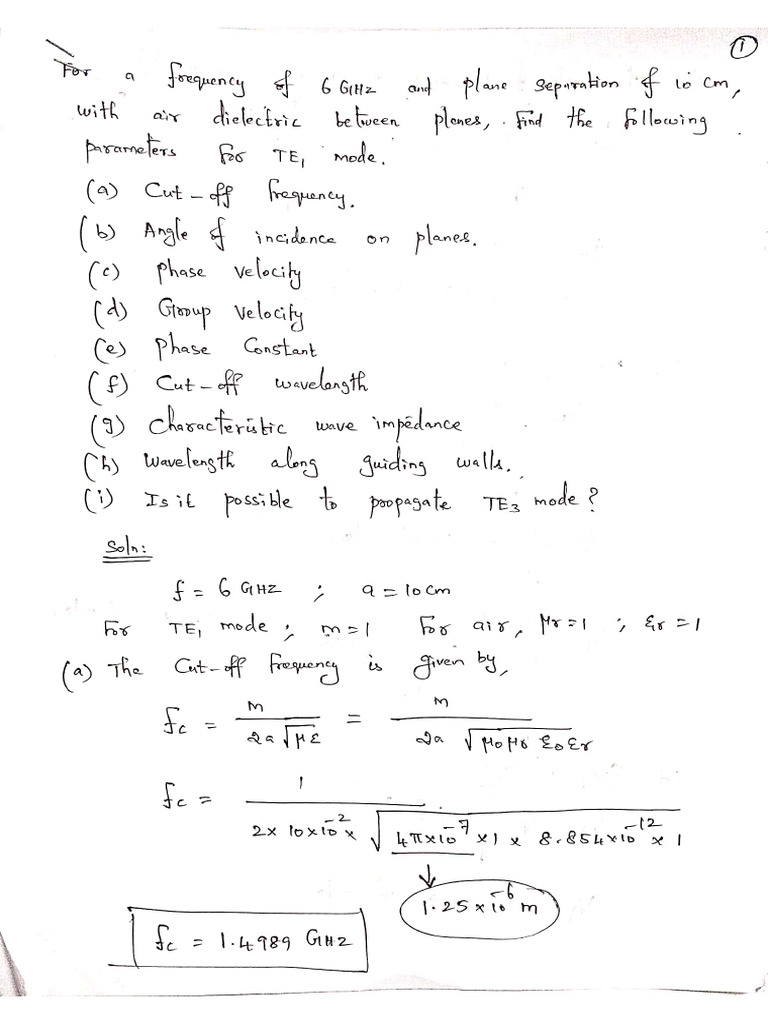 1
For a frequency of 6 GHz and plane separation of 10 cm,
with air dielectric between planes, find the following
parameters for TE₁ mode.
(a) Cut-off frequency.
(b) Angle of incidence on planes.
(c) Phase velocity
(d) Group velocity
(e) Phase Constant
(f) Cut-off wavelength
(g) Characteristic wave impedance
(h) Wavelength along guiding walls.
(i) Is it possible to propagate TE₃ mode?
Soln:
f = 6 GHz ; a = 10 cm
For TE₁ mode ; m=1 For air, μr=1 ; εr=1
(a) The Cut-off frequency is given by,
fc = m / 2a√με = m / 2a √μ0μr ε0εr
fc = 1 / 2 × 10×10⁻² × √4π×10⁻⁷ × 1 × 8.854×10⁻¹² × 1
1.25 × 10⁻⁶ m
fc = 1.4989 GHz